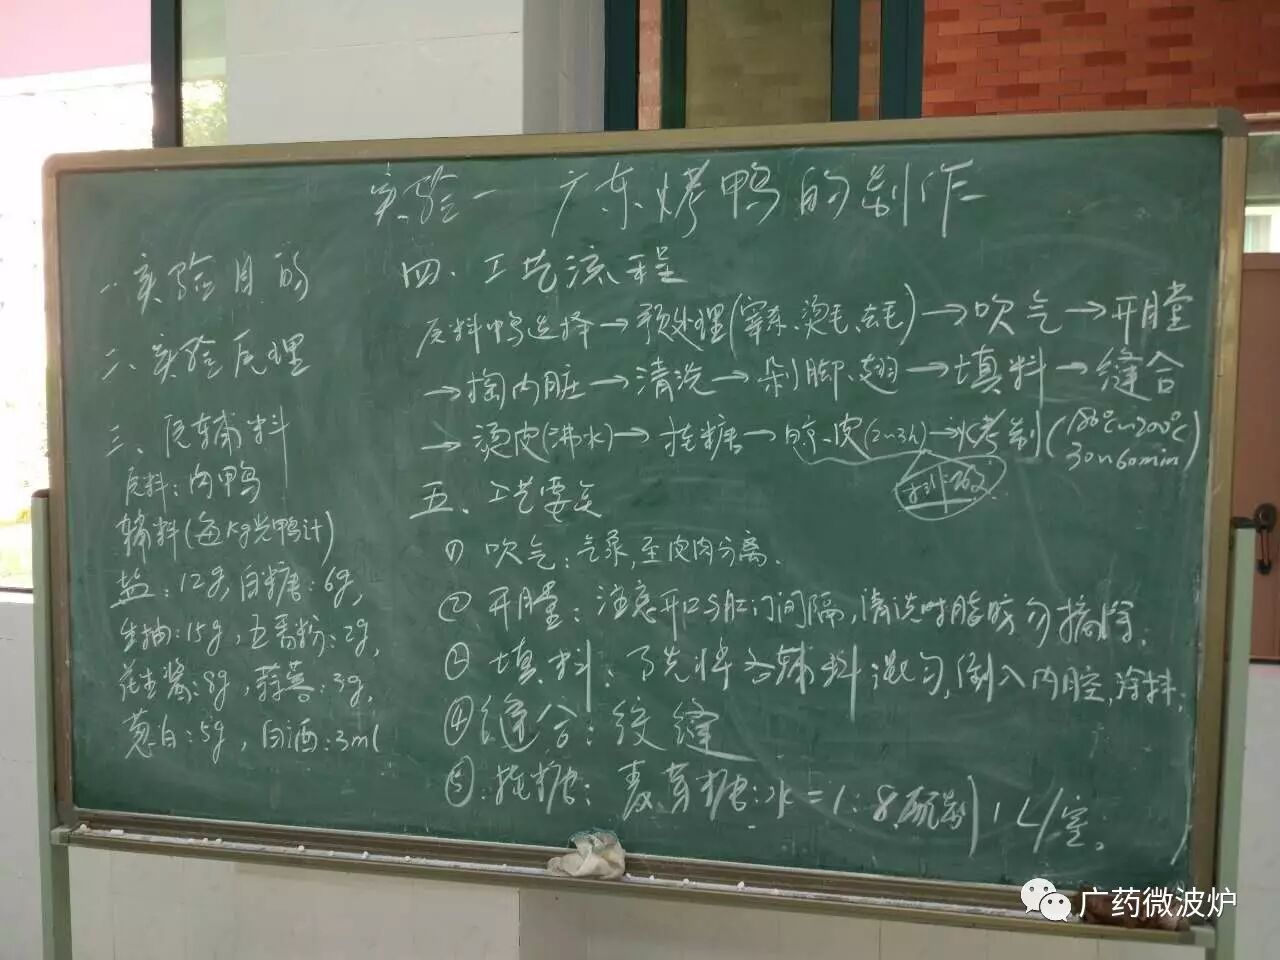 实验一 广东烤鸭的制作
一.实验目的
二.实验原理
三、原辅料
原料:肉鸭
辅料(每kg光鸭计)
盐:12g,白糖:6g,
生抽:15g,五香粉:2g,
花生酱:8g,蒜蓉:3g,
葱白:5g,白酒:3ml
四.工艺流程
原料鸭选择→预处理(宰杀、烫毛、去毛)→吹气→开膛
→掏内脏→清洗→剁脚、翅→填料→缝合
→烫皮(沸水)→挂糖→晾皮(2~3h)→烤制(180℃~200℃ 30~60min)
五.工艺要点
① 吹气:气录,至皮肉分离.
② 开膛:注意开口与肛门间隔,清洗时脂肪勿摘除.
③ 填料:先将各辅料混匀,倒入内腔,涂抹;
④ 缝合:绞缝
⑤.挂糖:麦芽糖:水=1:8 1L/室。
广药微波炉